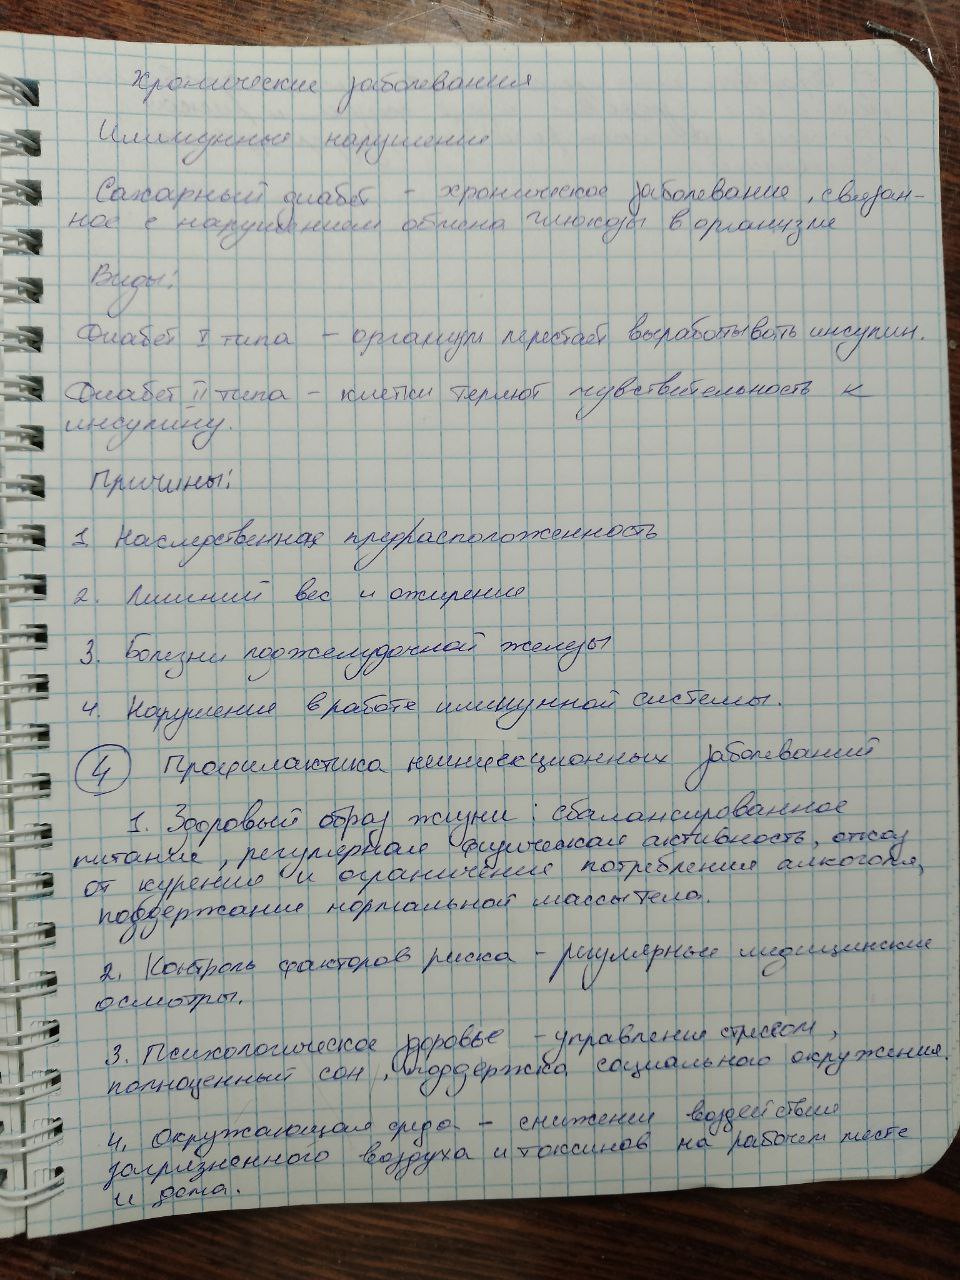 Хронические заболевания
Иммунные нарушение
Сахарный диабет - хроническое заболевание, связан-
ное с нарушением обмена глюкозы в организме
Виды:
Диабет I типа - организм перестаёт вырабатывать инсулин.
Диабет II типа - клетки теряют чувствительность к
инсулину.
Причины:
1. Наследственная предрасположенность
2. Лишний вес и ожирение
3. Болезни поджелудочной железы
4. Нарушение в работе иммунной системы.
4 Профилактика неинфекционных заболеваний
1. Здоровый образ жизни: сбалансированное
питание, регулярная физическая активность, отказ
от курения и ограничение потребления алкоголя,
поддержание нормальной массы тела.
2. Контроль факторов риска - регулярные медицинские
осмотры.
3. Психологическое здоровье - управление стрессом,
полноценный сон, поддержка социального окружения.
4. Окружающая среда - снижение воздействия
загрязненного воздуха и токсинов на рабочем месте
и дома.